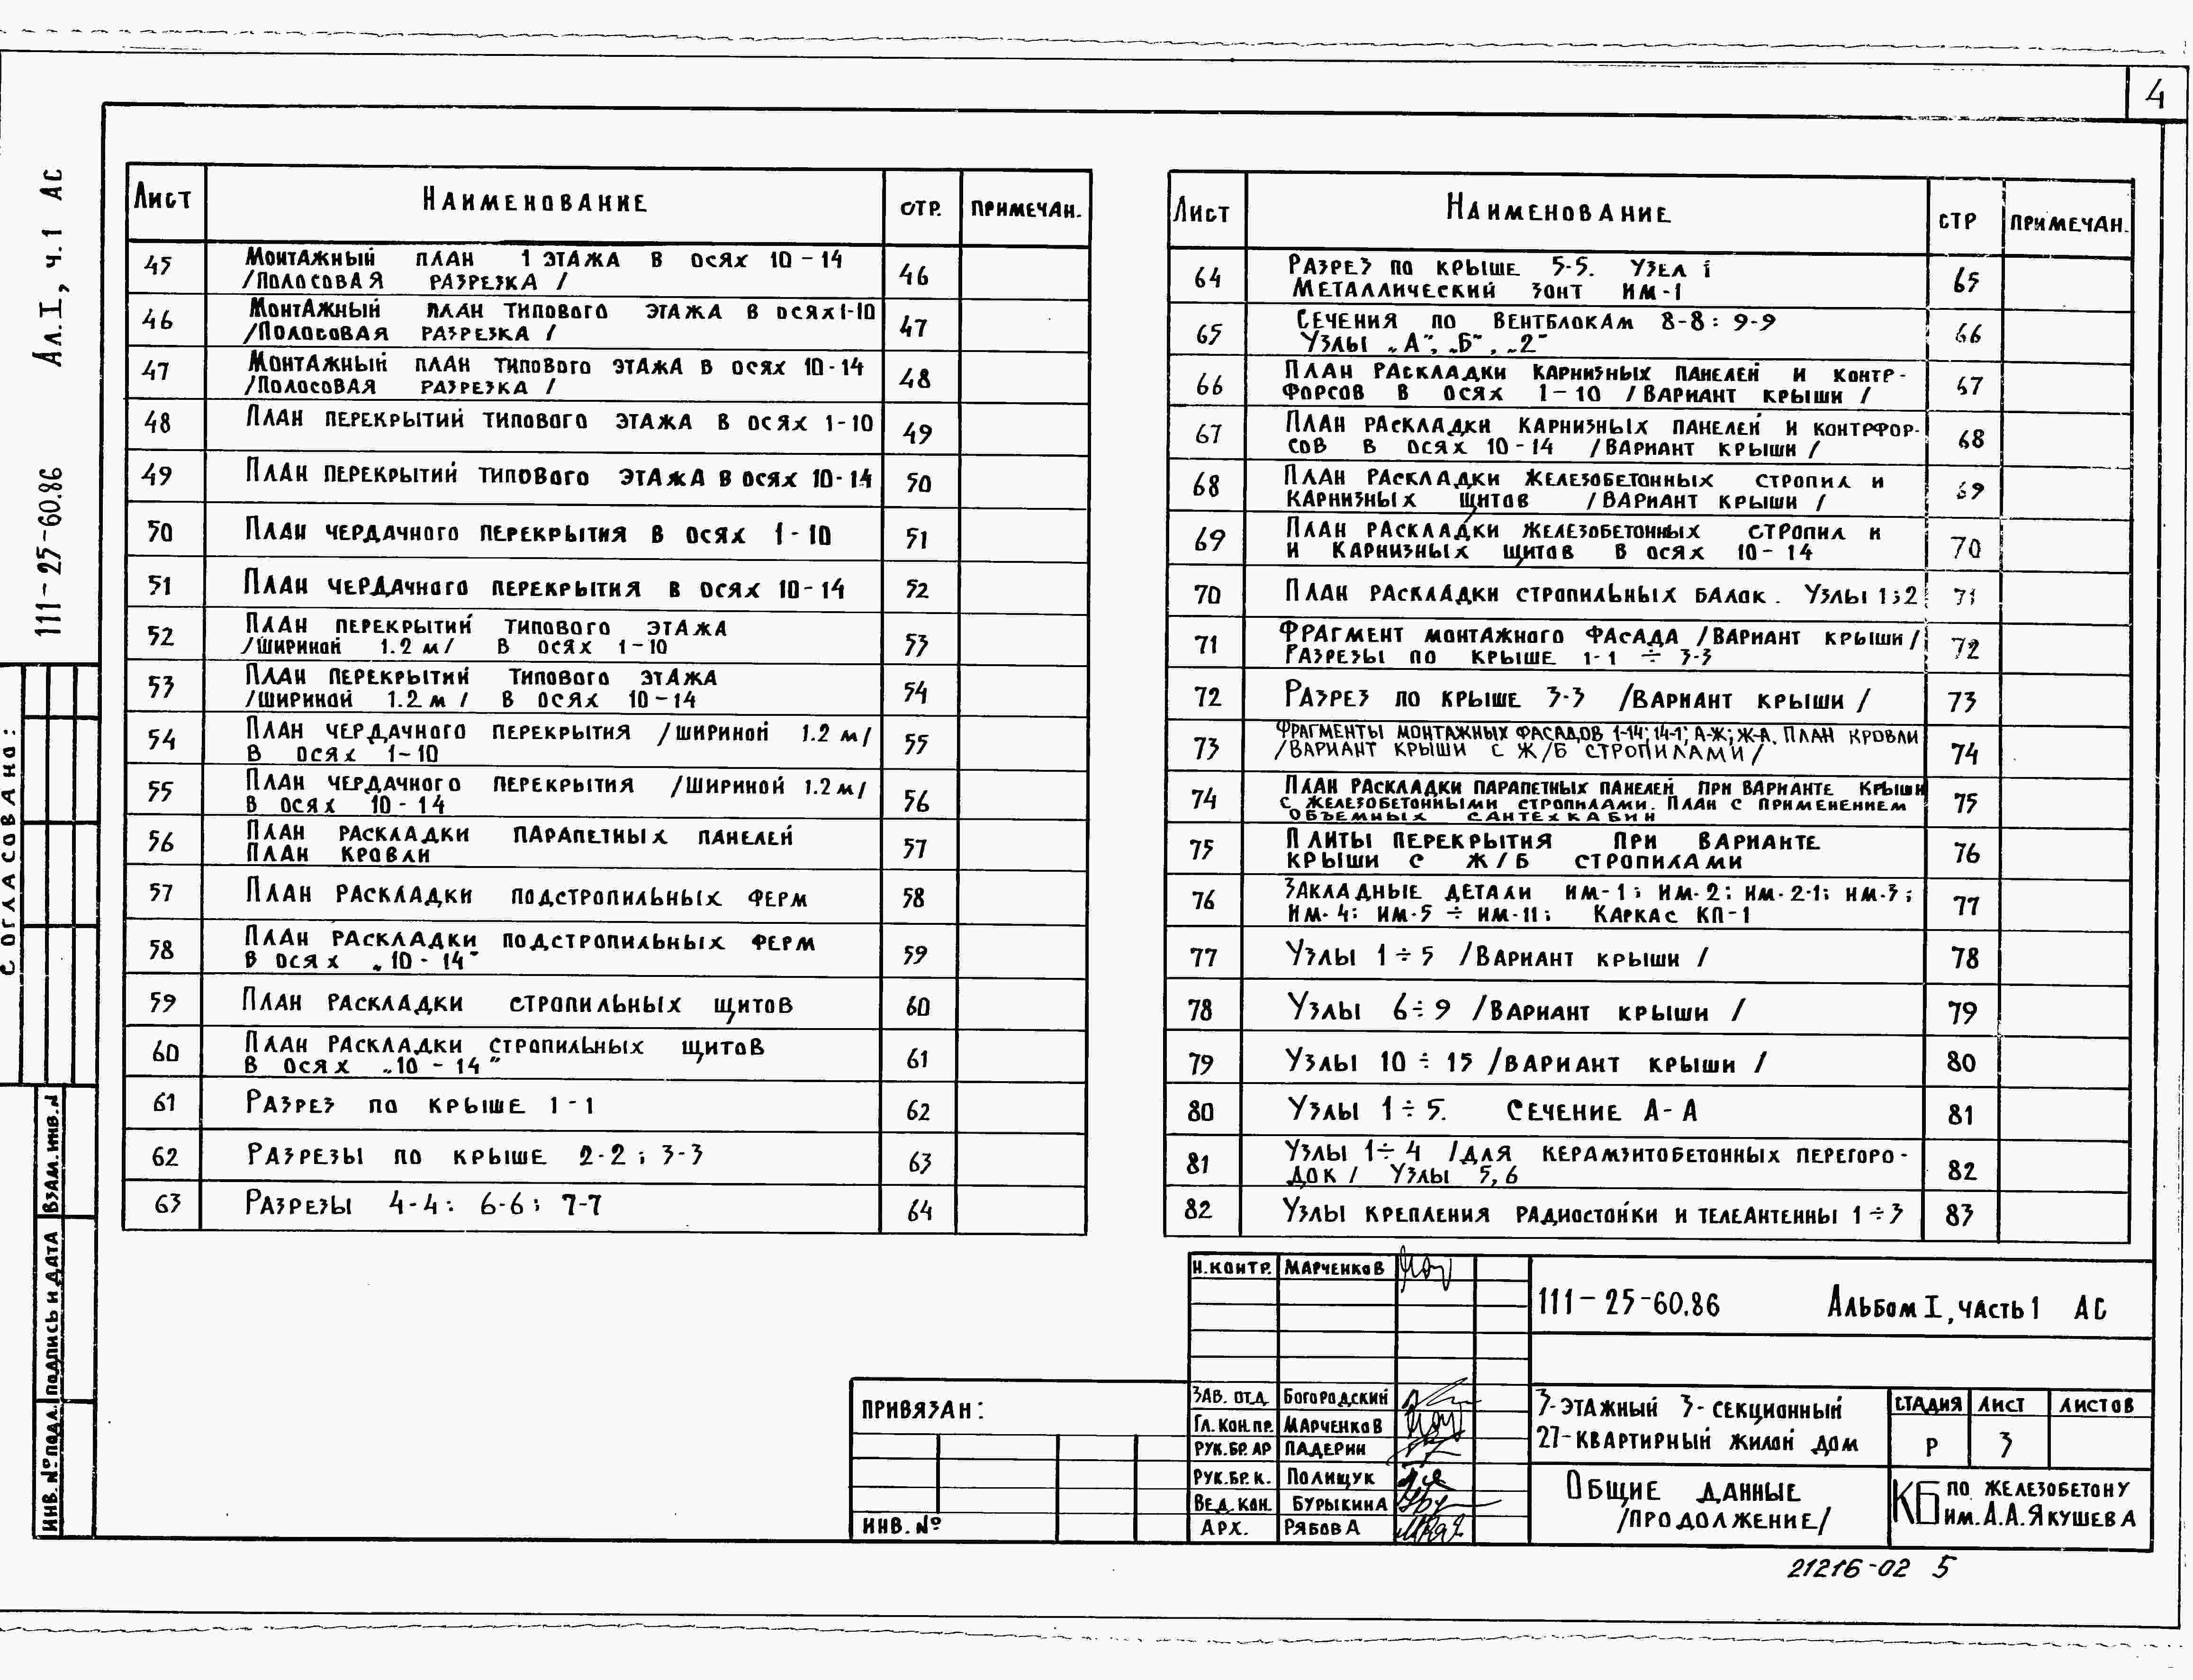 4
Ал.I, ч.1 АС
111-25-60.86
Согласовано:
Взам.инв.N
Подпись и дата
Инв.№подл.
Лист Наименование стр. примечан.
45 Монтажный план 1 этажа в осях 10-14
/полосовая разрезка/ 46
46 Монтажный план типового этажа в осях 1-10
/полосовая разрезка/ 47
47 Монтажный план типового этажа в осях 10-14
/полосовая разрезка/ 48
48 План перекрытий типового этажа в осях 1-10 49
49 План перекрытий типового этажа в осях 10-14 50
50 План чердачного перекрытия в осях 1-10 51
51 План чердачного перекрытия в осях 10-14 52
52 План перекрытий типового этажа
/шириной 1.2 м/ в осях 1-10 53
53 План перекрытий типового этажа
/шириной 1.2 м/ в осях 10-14 54
54 План чердачного перекрытия /шириной 1.2 м/
в осях 1-10 55
55 План чердачного перекрытия /шириной 1.2 м/
в осях 10-14 56
56 План раскладки парапетных панелей
План кровли 57
57 План раскладки подстропильных ферм 58
58 План раскладки подстропильных ферм
в осях „10-14" 59
59 План раскладки стропильных щитов 60
60 План раскладки стропильных щитов
в осях „10-14" 61
61 Разрез по крыше 1-1 62
62 Разрезы по крыше 2-2; 3-3 63
63 Разрезы 4-4; 6-6; 7-7 64
Лист Наименование стр примечан.
64 Разрез по крыше 5-5. Узел 1
Металлический зонт ИМ-1 65
65 Сечения по вентблокам 8-8; 9-9
Узлы „А", „Б", „2" 66
66 План раскладки карнизных панелей и контр-
форсов в осях 1-10 /вариант крыши/ 67
67 План раскладки карнизных панелей и контрфор-
сов в осях 10-14 /вариант крыши/ 68
68 План раскладки железобетонных стропил и
карнизных щитов /вариант крыши/ 69
69 План раскладки железобетонных стропил и
и карнизных щитов в осях 10-14 70
70 План раскладки стропильных балок. Узлы 1;2 71
71 Фрагмент монтажного фасада /вариант крыши/
Разрезы по крыше 1-1 ÷ 3-3 72
72 Разрез по крыше 3-3 /вариант крыши/ 73
73 Фрагменты монтажных фасадов 1-14; 14-1; А-Ж; Ж-А. План кровли
/вариант крыши с ж/б стропилами/ 74
74 План раскладки парапетных панелей при варианте крыши
с железобетонными стропилами. План с применением
объемных сантехкабин 75
75 Плиты перекрытия при варианте
крыши с ж/б стропилами 76
76 Закладные детали ИМ-1; ИМ-2; ИМ-2-1; ИМ-3;
ИМ-4; ИМ-5 ÷ ИМ-11; Каркас КП-1 77
77 Узлы 1÷5 /вариант крыши/ 78
78 Узлы 6÷9 /вариант крыши/ 79
79 Узлы 10÷15 /вариант крыши/ 80
80 Узлы 1÷5. Сечение А-А 81
81 Узлы 1÷4 /для керамзитобетонных перегоро-
док/ Узлы 5,6 82
82 Узлы крепления радиостойки и телеантенны 1÷3 83
Привязан:
Инв.№
Н.контр. Марченков
Зав. отд. Богородский
Гл.кон.пр. Марченков
Рук.бр.ар Падерин
Рук.бр.к. Полищук
Вед.кон. Бурыкина
Арх. Рябова
111-25-60.86 Альбом I, часть 1 АС
3-этажный 3-секционный
27-квартирный жилой дом
стадия лист листов
Р 3
Общие данные
/продолжение/
КБ по железобетону
им.А.А.Якушева
21216-02 5